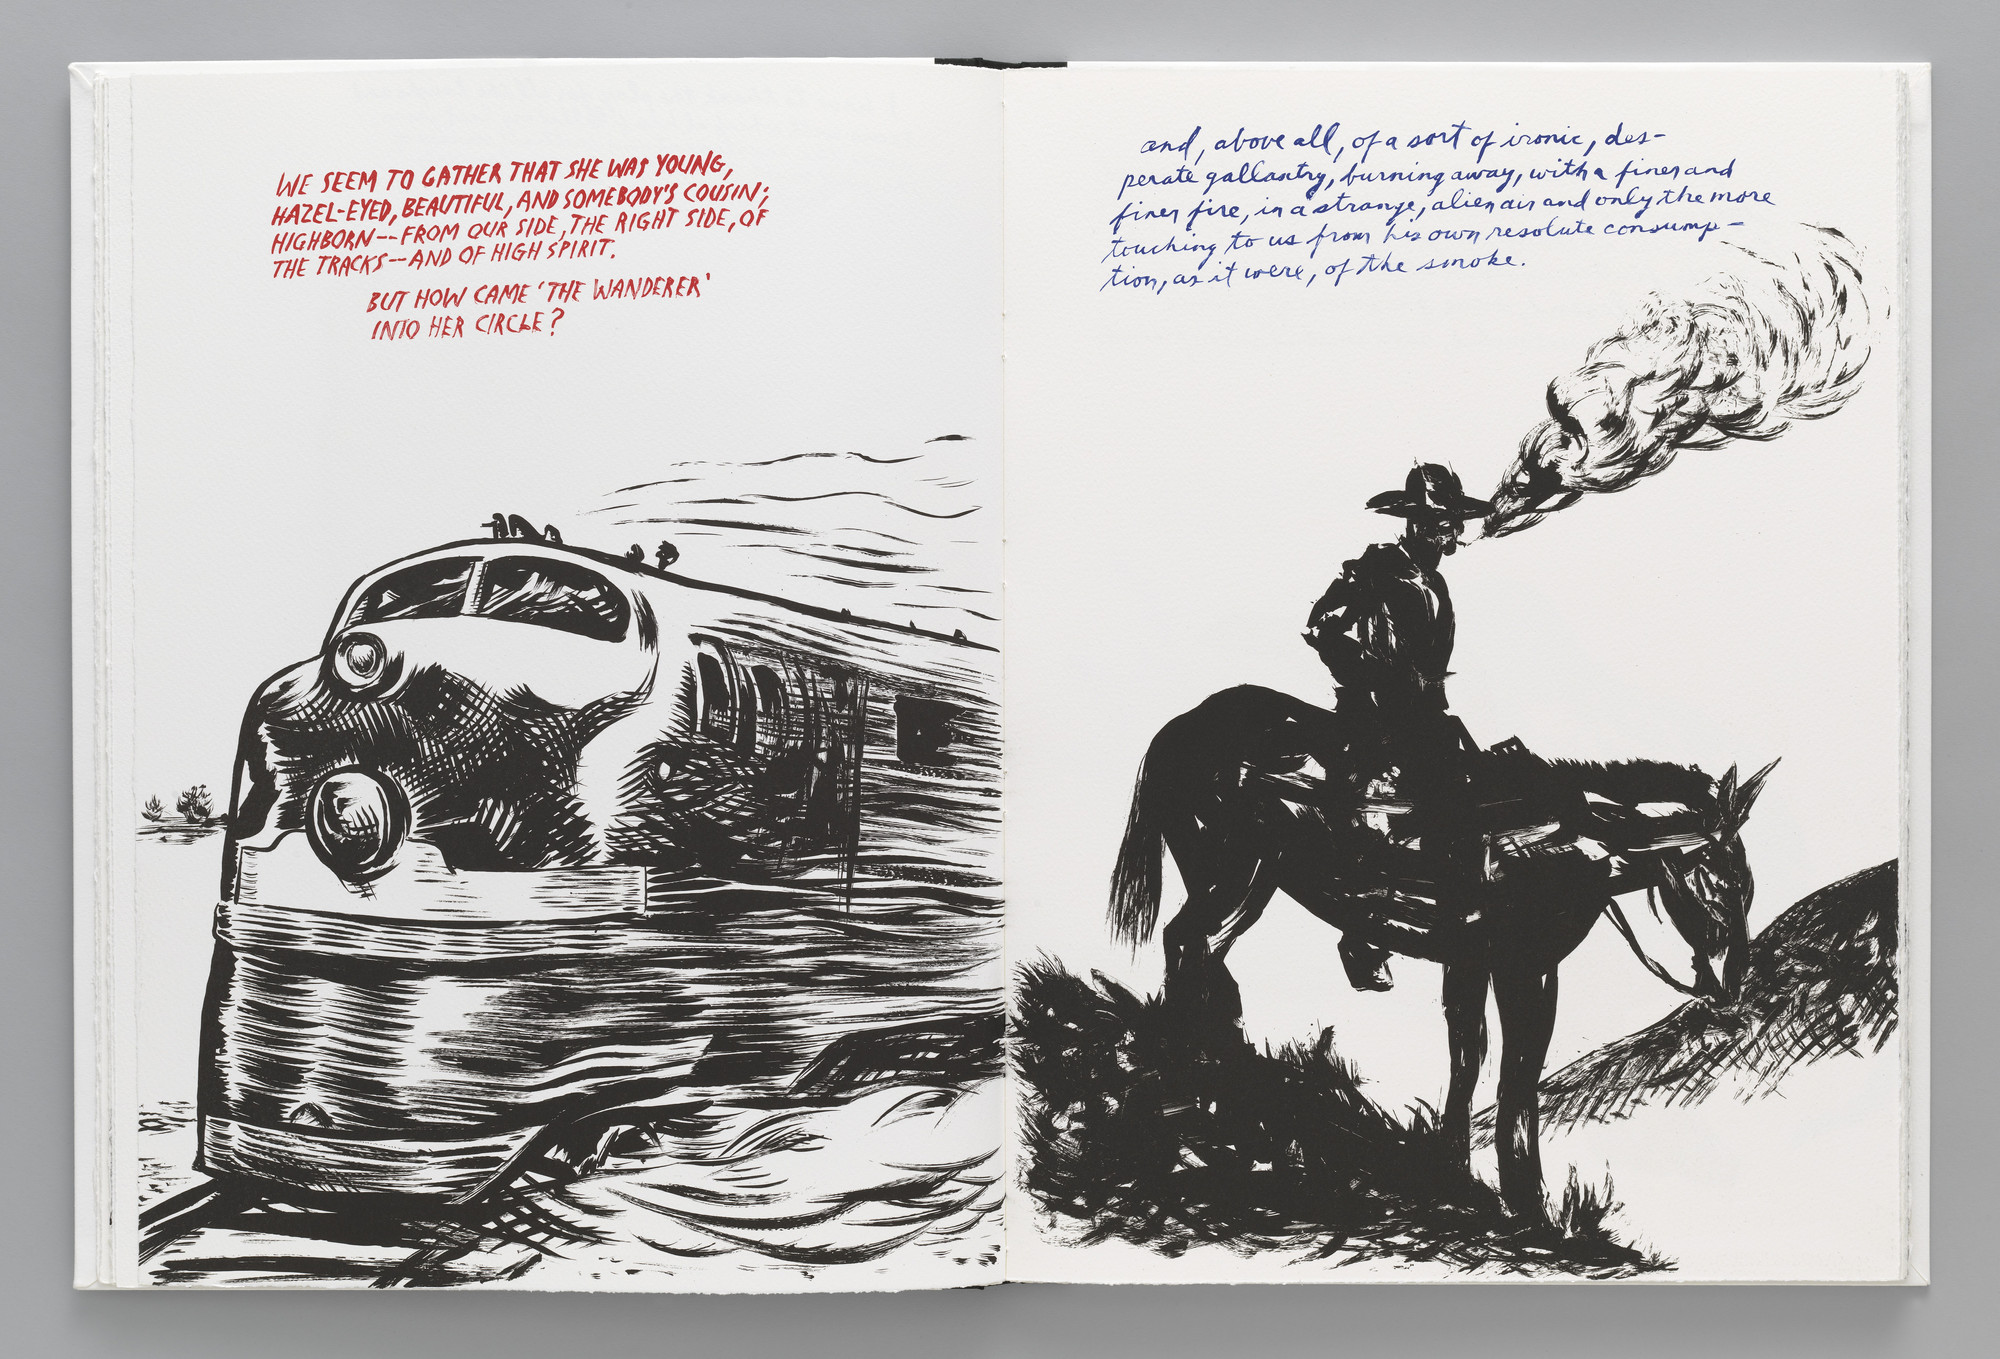 WE SEEM TO GATHER THAT SHE WAS YOUNG,
HAZEL-EYED, BEAUTIFUL, AND SOMEBODY'S COUSIN;
HIGHBORN--FROM OUR SIDE, THE RIGHT SIDE, OF
THE TRACKS--AND OF HIGH SPIRIT.
BUT HOW CAME 'THE WANDERER'
INTO HER CIRCLE?
and, above all, of a sort of ironic, des-
perate gallantry, burning away, with a finer and
finer fire, in a strange, alien air and only the more
touching to us from his own resolute consump-
tion, as it were, of the smoke.